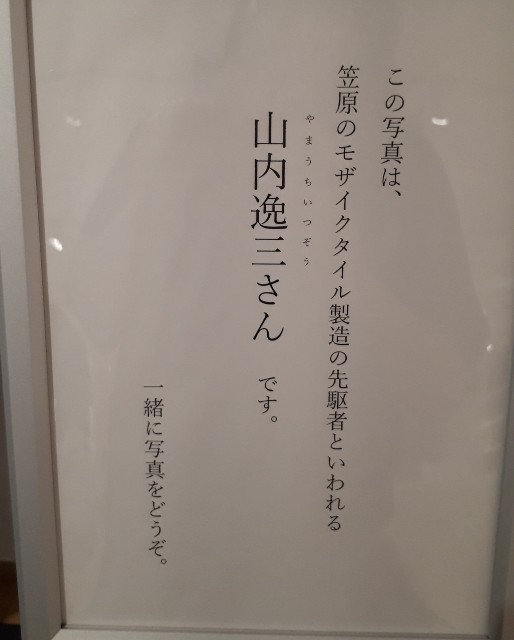 この写真は、
笠原のモザイクタイル製造の先駆者といわれる
やまうちいつぞう
山内逸三さん です。
一緒に写真をどうぞ。